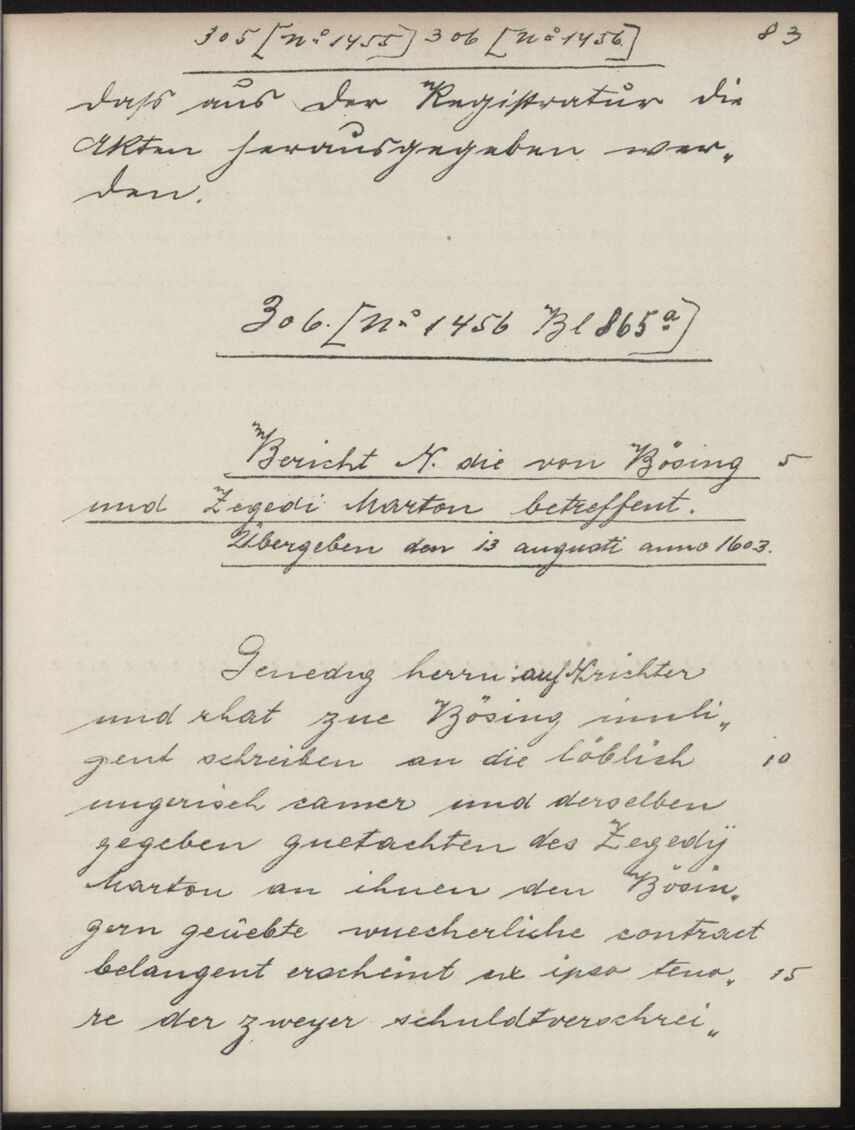 305 [No 1455] 306 [No 1456.] 83
dass aus der Registratur die
Akten herausgegeben wer„
den.
306. [No 1456 Bl 865a]
Bericht N. die von Bösing 5
und Zegedi Marton betreffent.
Übergeben den 13 augusti anno 1603.
Genedig herrn: auf N richter
und rhat zue Bösing innli„
gent schreiben an die löblich 10
ungerisch camer und derselben
gegeben guetachten des Zegedÿ
Marton an ihnen den Bösin„
gern geüebte wuecherliche contract
belangent erscheint ex ipso teno„ 15
re der zweyer schuldtverschrei„